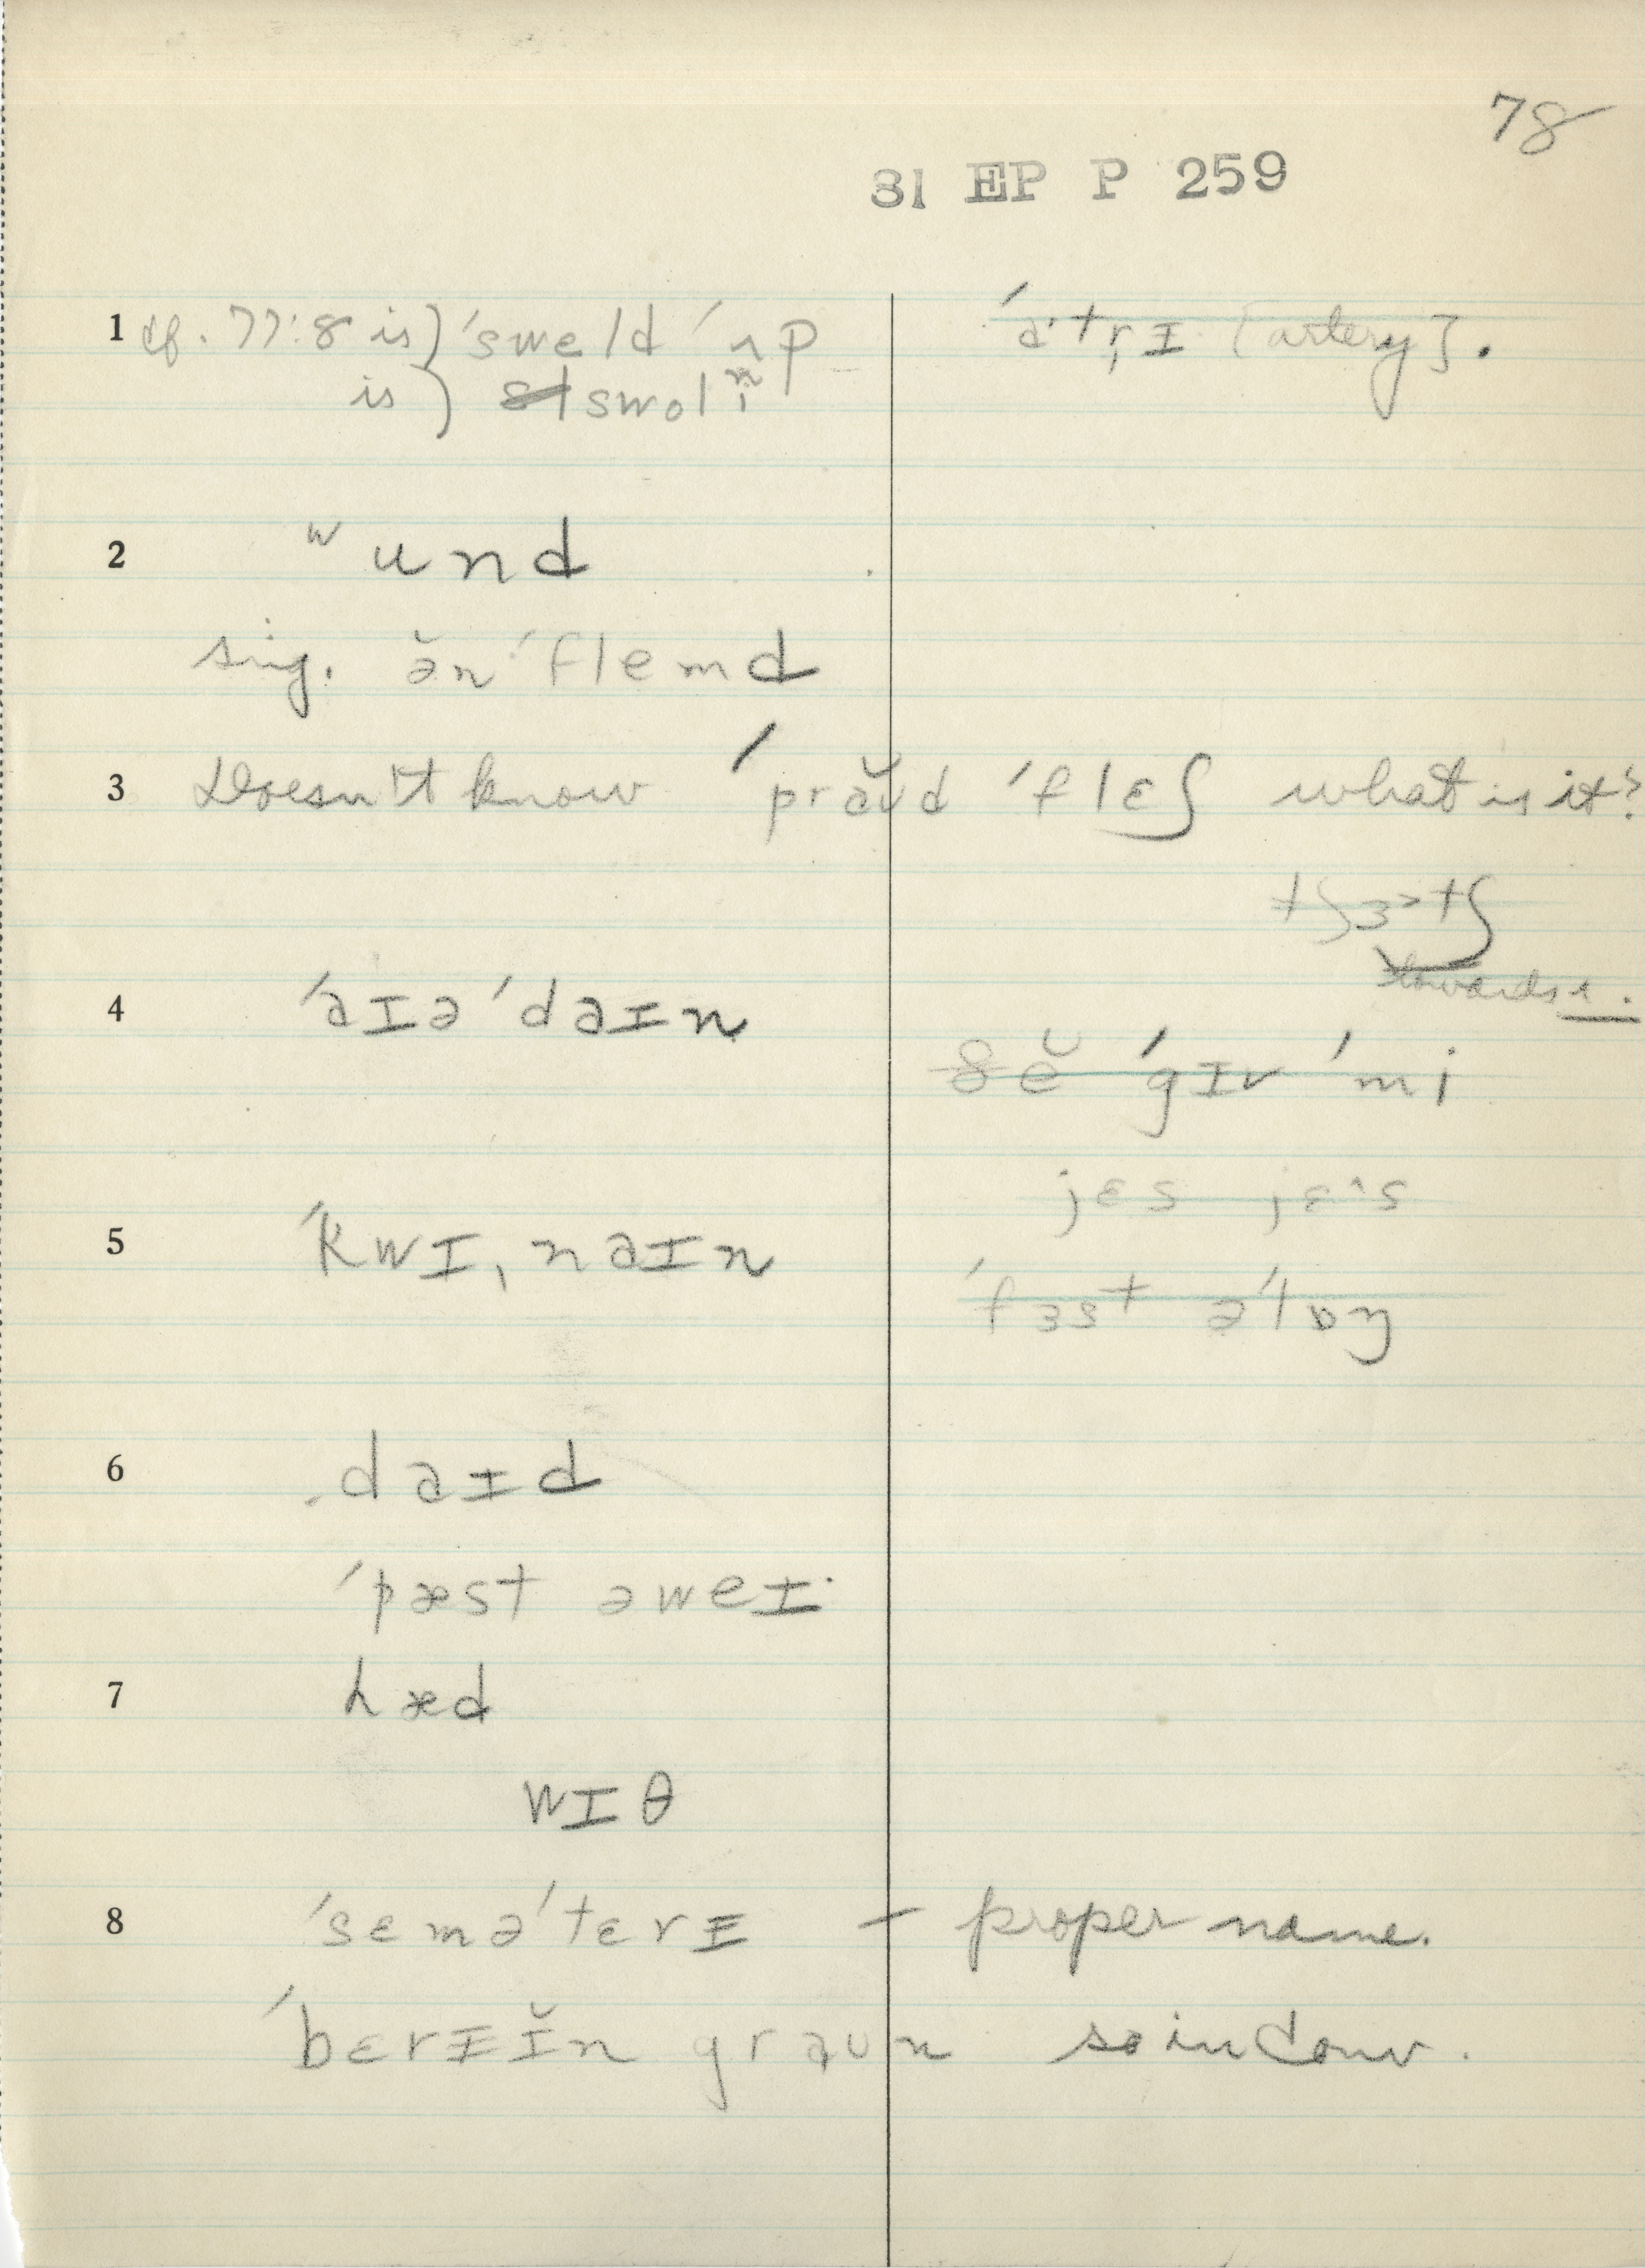 78
31 EP P 259
1 cf. 77:8 is) ˈsweld ˈʌp
ˈɑ·tr̩ɪ [artery].
is) swolṇ
2 ʷund
sug. ə̆nˈflemd
3 Doesn't know ˈpraʊ̆d ˈflɛʃ what is it?
tʃɜ˃tʃ
towards ɹ.
4 ˈaɪəˈdaɪn
ðĕ ˈgɪv ˈmi
jɛs jɛ^s
5 ˈkwɪˌnaɪn
ˈfɜst əˈlɒŋ
6 daɪd
ˈpæst əweɪ·
7 hæd
wɪθ
8 ˈsɛməˈtɛrɪ – proper name.
ˈbɛrɪɪ̆n graʊn so in conv.